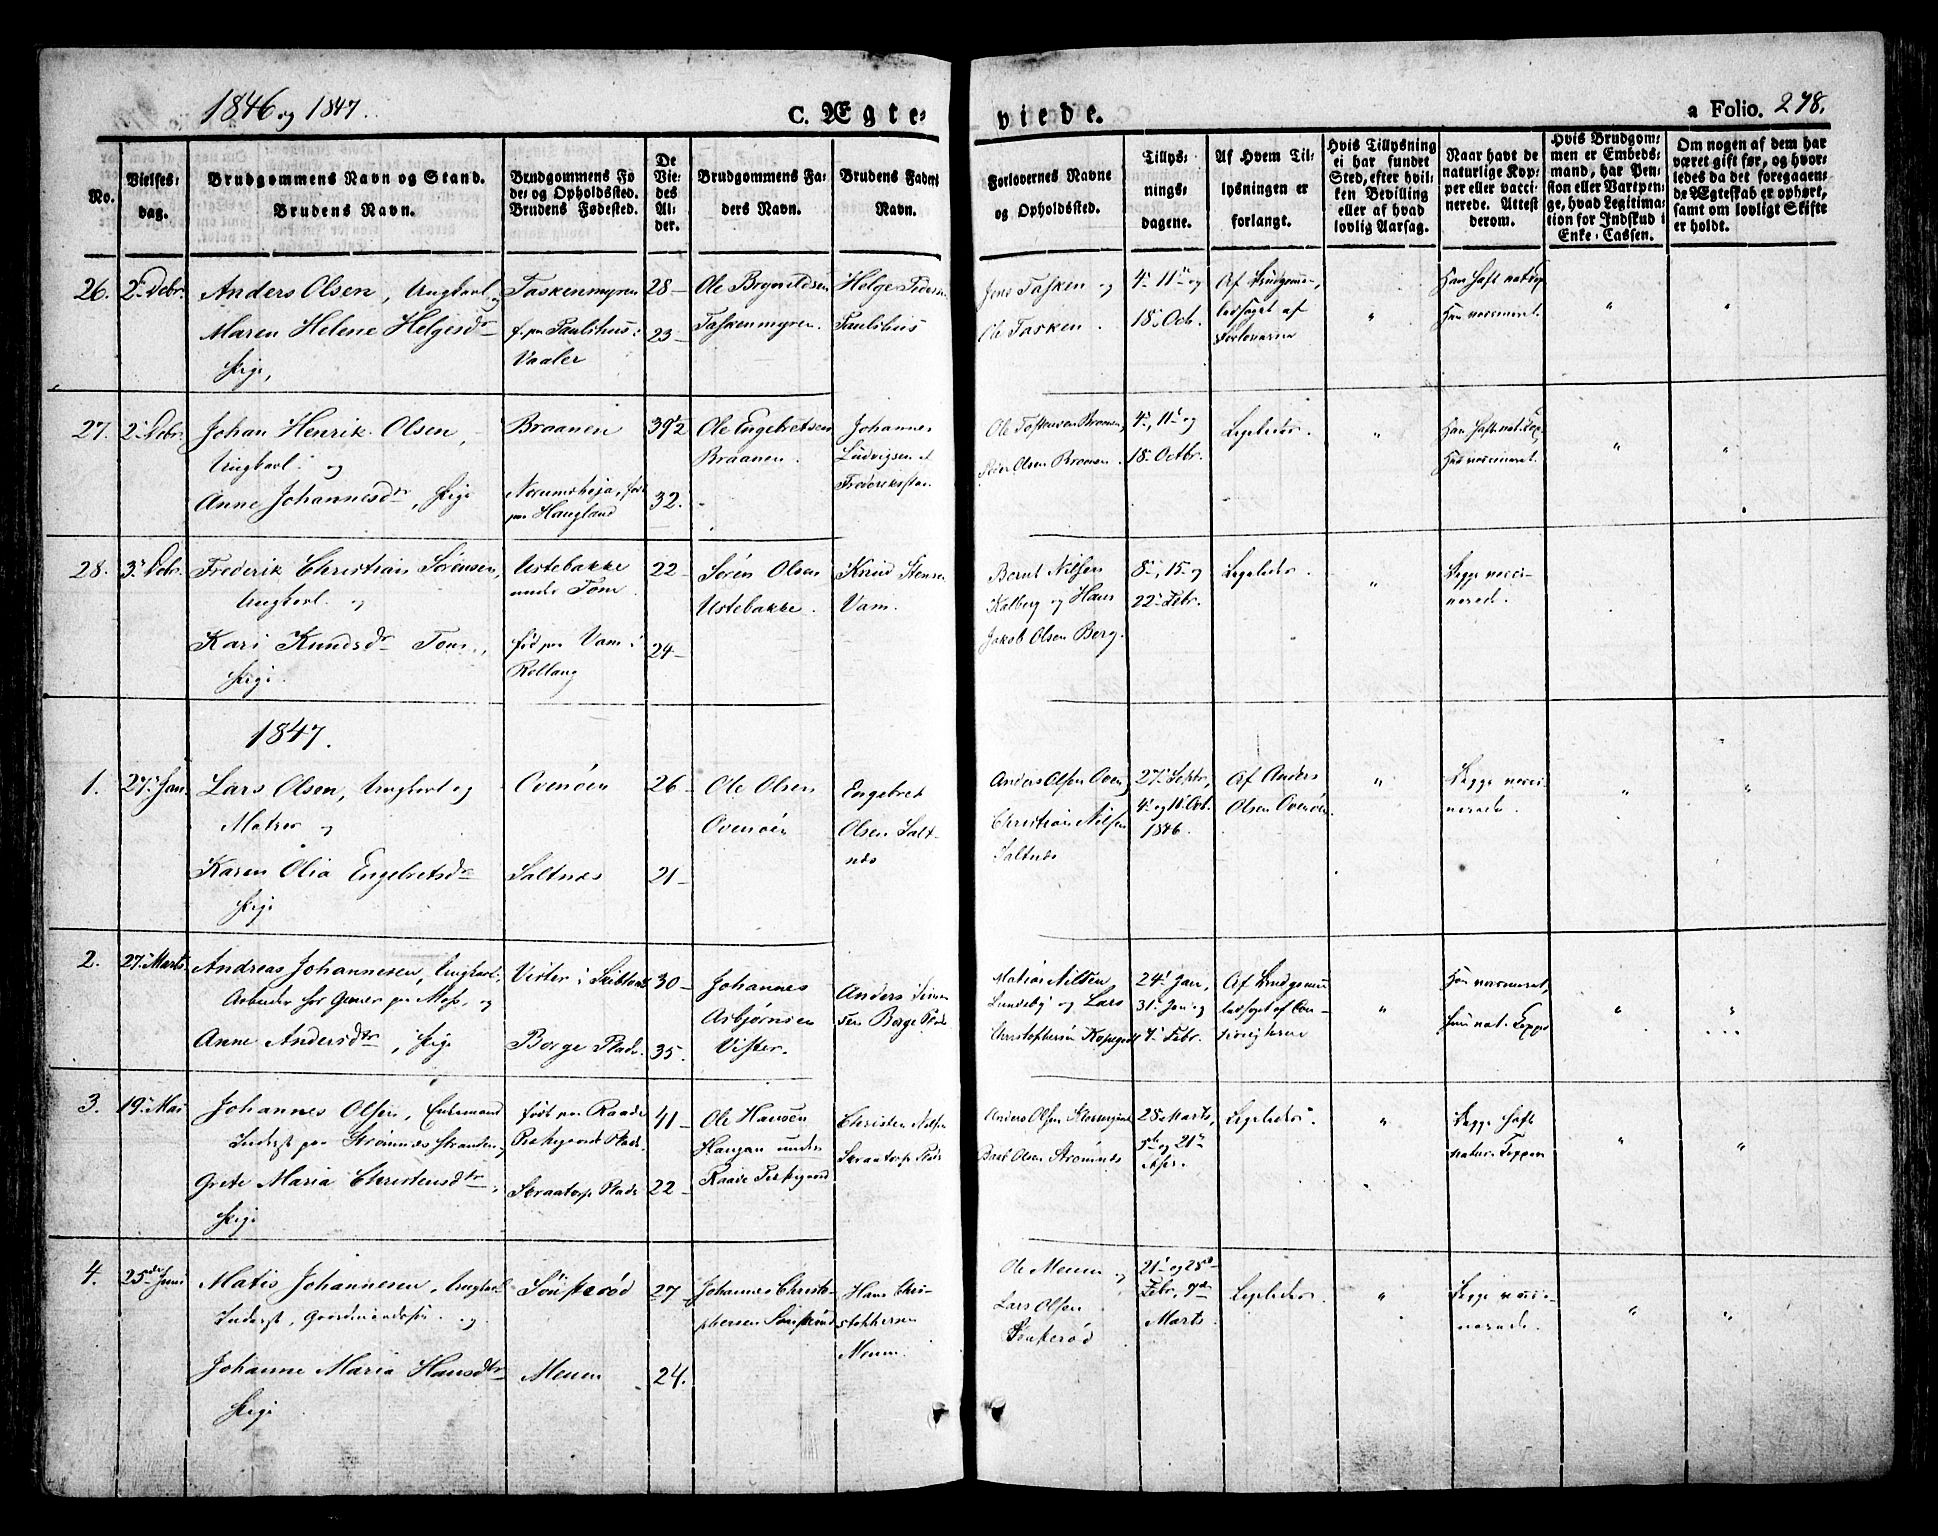 1846 og 1847.
C. Ægte-
viede.
a Folio. 278.
No.
Vielses-
dag.
Brudgommens Navn og Stand.
Brudens Navn.
Brudgommens Fø
de- og Opholdssted.
Brudens Fødested.
De
Vie-
des
Al-
der.
Brudgommens Fa-
ders Navn.
Brudens Faders
Navn.
Forlovernes Navne
og Opholdssted.
Tillys-
nings-
dagene.
Af Hvem Til-
lysningen er
forlangt.
Hvis Tillysning
ei har fundet
Sted, efter hvil-
ken Bevilling
eller af hvad
lovlig Aarsag.
Naar havt de
naturlige Kop-
per eller vacci-
nerede. Attest
derom.
Hvis Brudgom-
men er Embeds-
mand, har Pen-
sion eller Vartpen-
ge, hvad Legitima-
tion for Indskud i
Enke-Cassen.
Om nogen af dem har
været gift før, og hvor-
ledes da det foregaaen-
de Ægteskab er ophørt,
samt om lovligt Skifte
er holdt.
26. 2. Debr.
Anders Olsen, Ungkarl og
Maren Helene Helgesdr
Pige,
Taskenmyren
f. paa Paulihus i
Vaaler
28
23
Ole Brynildsen
Taskenmyren.
Helge
Paulihus
Jens Tasken og
Ole Tasken.
4. 11. og
18. Octb.
Af Brudgommen,
ledsaget af
Forloverne
27.
Johan Henrik Olsen,
Ungkarl og
Anne Johannesdr, Pige
Braanen
paa Haugland
39½
32.
Ole Engebretsen
Braanen.
Johannes
Ludvigsen
Frederikstad
Ole
Peder Olsen Braanen.
4, 11 og
18. Octbr.
Ligeledes.
28.
Frederik Christian Sørensen,
Ungkarl og
Kari Knudsdr Tom,
Pige.
Ustebakke
under Tom.
født paa Vam i
Rollaug
22
24
Søren Olsen
Ustebakke.
Knud
Vam.
Bernt Nilsen
Kalberg og Hans
Jakob Olsen Berg.
8, 15 og
22. Febr.
Ligeledes.
Begge vacci-
nerede.
1847.
1. 27. Jan.
Lars Olsen, Ungkarl og
Matros og
Karen Olia Engebretsdr
Pige
Ovenøen
Saltnæs
26
21
Ole Olsen
Ovenøen
Engebret
Olsen Salt-
næs
Anders Olsen Oven,
Christian Nilsen
Saltnæs
27. Septbr,
4. og 11. Oct.
1846.
Af Anders
Olsen Ovenøen.
Begge vacci-
nerede.
2. 27. Marts
Andreas Johannesen, Ungkarl,
Arbeider paa Moss, og
Anne Andersdtr, Pige
Vister i Skibtvedt
Borge Plads.
30
35.
Johannes
Asbjørnsen
Vister.
Anders
Borge Plads
Matias Nilsen
Lundeby og Lars
Christophersen
24. Jan,
31. Jan og
7. Febr.
Af Brudgommen
ledsaget af
Han vaccineret,
hun nat. Kopper
3. 19. Mai
Johannes Olsen, Enkemand
Inderst paa Strømnæsstranden,
Grete Maria Christensdtr,
Pige
født paa Raade
Præstegaards Plads.
Skraatorp Plads
41
22
Ole Hansen
Haugan under
Raade Præstegaard
Christen Nilsen
Skraatorp Plads
Anders Olsen
Olsen Strømnæs
28. Marts,
5te og 21de
Apr.
Ligeledes.
Begge haft
natur. Kopper
4. 25de Juni
Matis Johannesen, Ungkarl
Inderst, og
Johanne Maria Hansdtr
Pige
Sønsterød
Menn
27
24.
Johannes Christo-
phersen Sønsterød
Hans Chri-
stophersen
Ole og
Lars Olsen
Sønsterød
21. og 28de
Febr, 7de
Marts.
Ligeledes.
Begge vacci-
nerede.